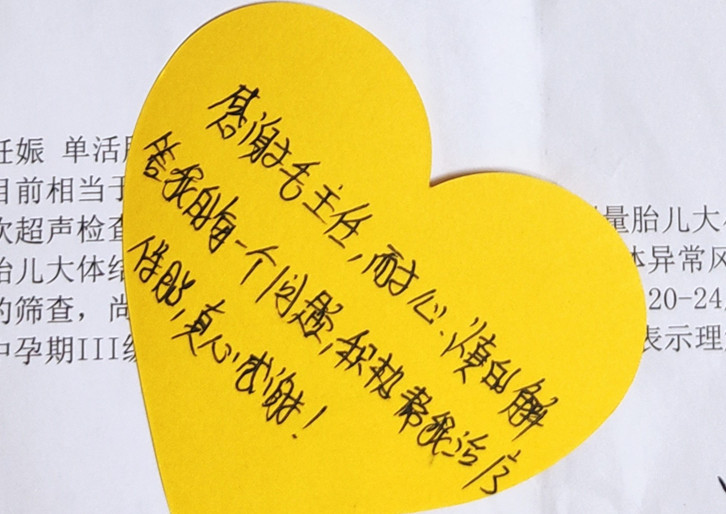 感谢毛主任,耐心、认真的解
答我的每一个问题,积极帮我治疗
保胎,真心感谢!
妊娠 单活
目前相当于
次超声检查
胎儿大体结
的筛查,尚
中孕期III级
量胎儿大
体异常风
20-24
表示理